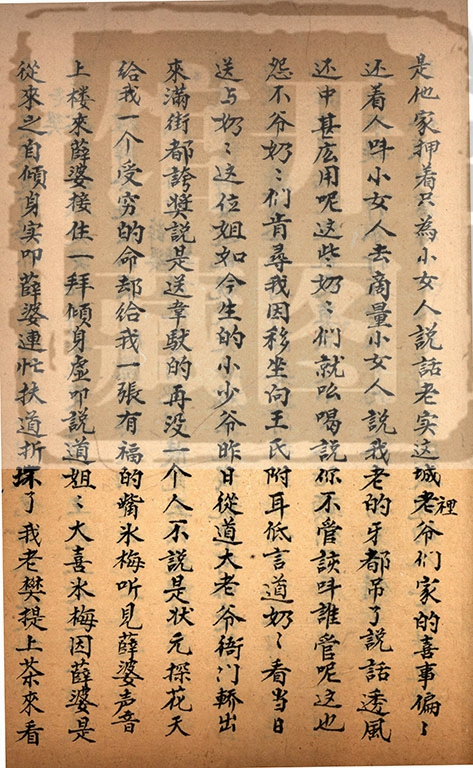 是他家押着只为小女人説話老实这城裡老爷们家的喜事偏〻
还着人呌小女人去商量小女人説我老的牙都吊了説話透風
还中甚庅用呢这些奶〻们就吆喝説你不管誤呌誰管呢这也
怨不爷奶〻们肯尋我因移坐向王氏附耳低言道奶〻看当日
送与奶〻这位姐如今生的小少爷昨日從道大老爷衙门轎出
來滿街都誇奬説是送韋馱的再没一个人不説是状元探花天
给我一个受穷的命却给我一張有福的嘴氷梅听見薛婆声音
上楼來薛婆接住一拜傾身虚叩説道姐〻大喜氷梅因薛婆是
從來之自傾身实叩薛婆連忙扶道折坏了我老樊提上茶來看